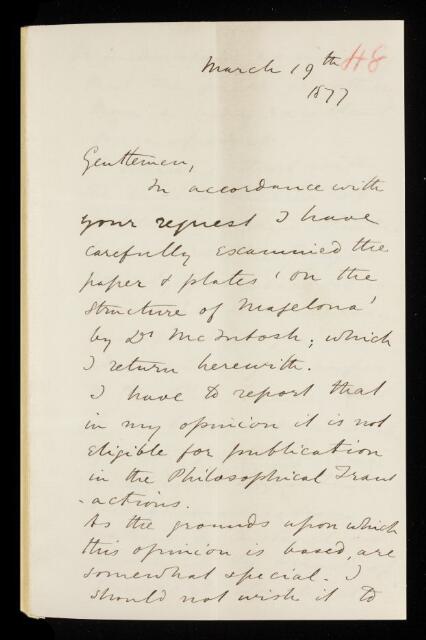 March 19th 48
1877
Gentlemen,
In accordance with
your request I have
carefully examined the
paper & plates 'on the
structure of Magelona'
by Dr McIntosh; which
I return herewith.
I have to report that
in my opinion it is not
eligible for publication
in the Philosophical Trans
-actions.
As the grounds upon which
this opinion is based, are
somewhat special. I
should not wish it to